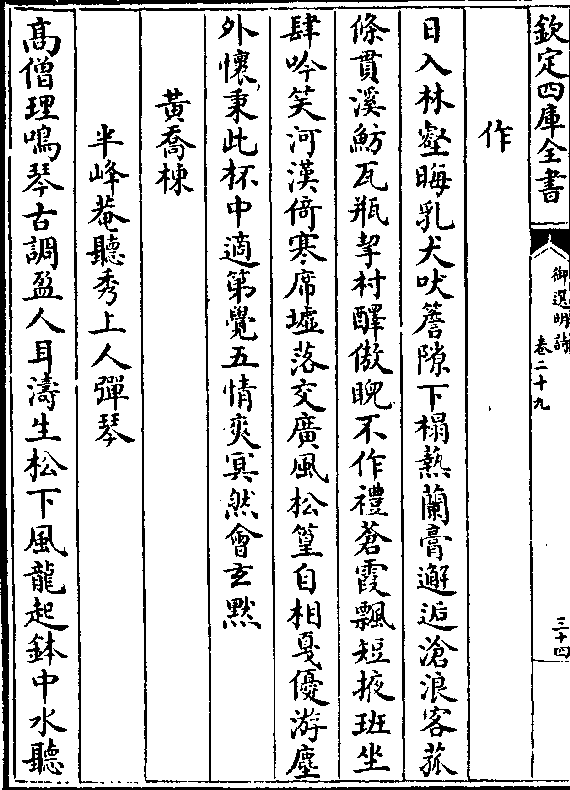 欽定四庫全書
御選明詩
卷二十九
三十四
作
日入林壑晦乳犬吠簷隙下榻爇蘭膏邂逅滄浪客菰
條貫溪魴瓦瓶挈村醳傲睨不作禮蒼霞飄短掖班坐
肆吟笑河漢倚寒席墟落交廣風松篁自相戛優游塵
外懷秉此杯中適第覺五情爽冥然會玄默
黃喬棟
半峰菴聽秀上人彈琴
高僧理鳴琴古調盈人耳濤生松下風龍起鉢中水聽